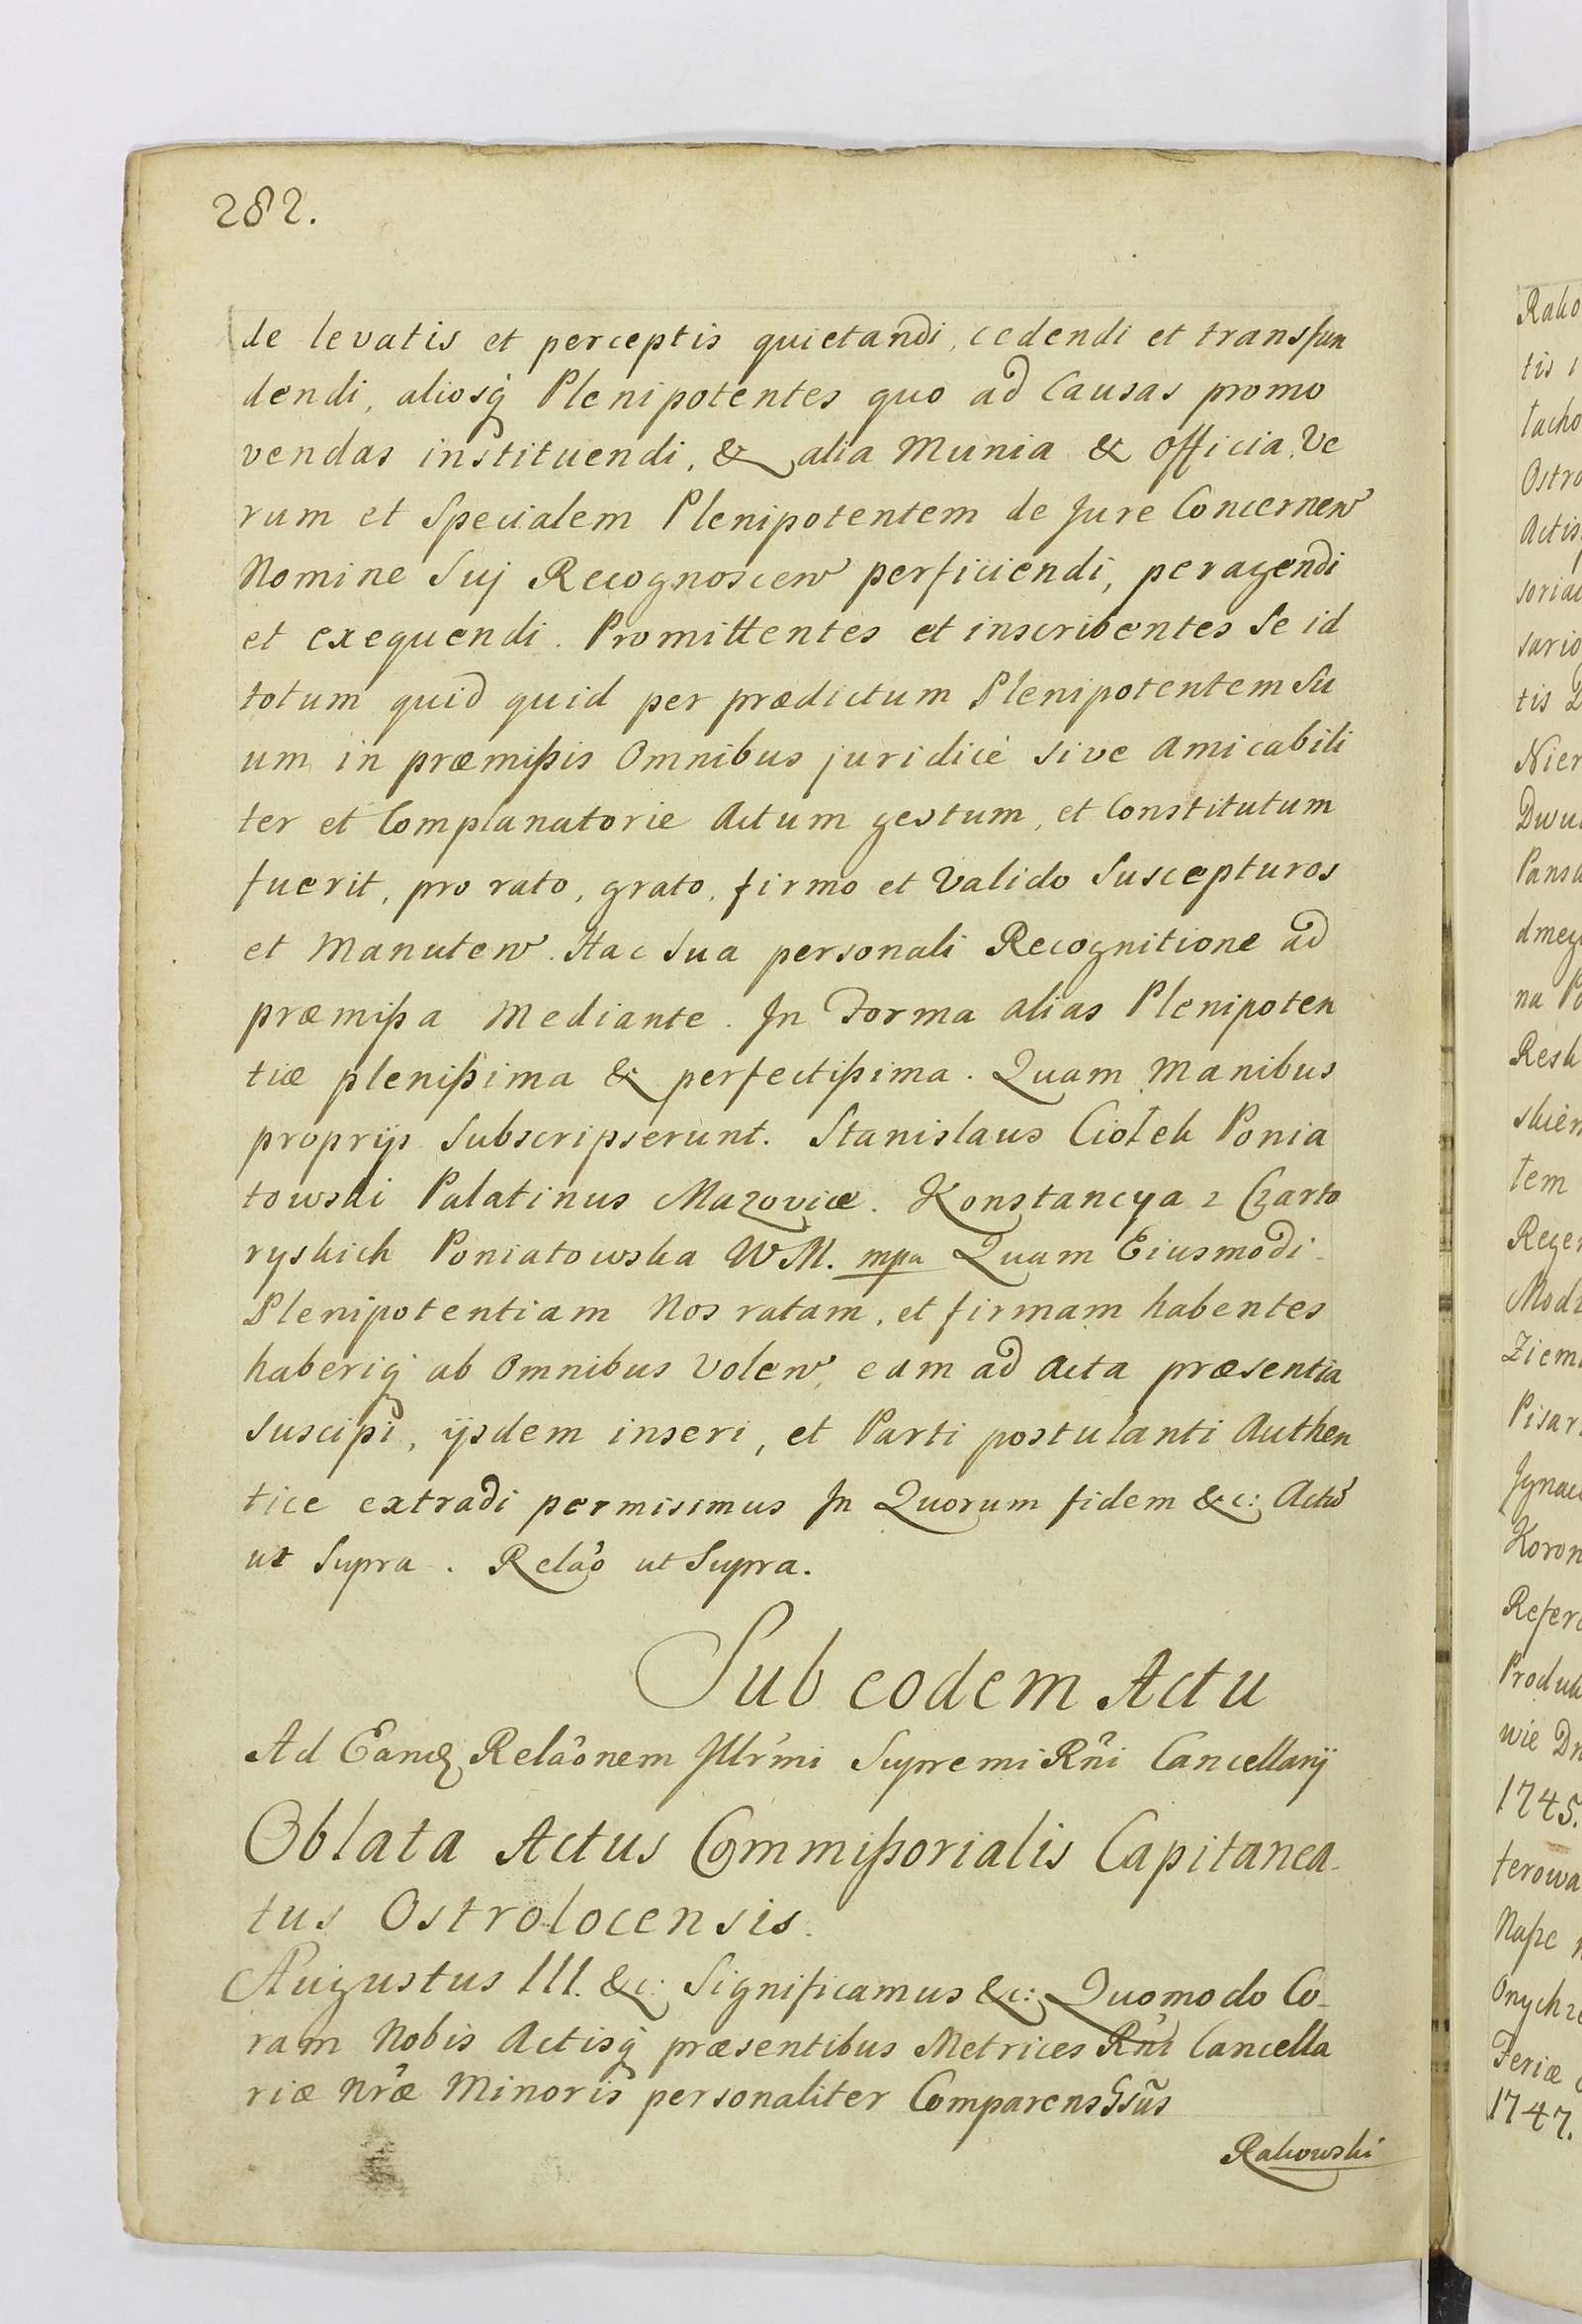 282.
de levatis et perceptis quietandi, cedendi et transfun
dendi, aliosq́ Plenipotentes quo ad Causas promo
vendas instituendi, & alia Munia & Officia Ve
rum et Specialem Plenipotentem de Jure Concernen̄
Nomine Suj Recognoscen̄ perficiendi, peragendi
et exequendi. Promittentes et inscribentes Se id
totum quid quid per prædictum Plenipotentem Su
um in præmißis Omnibus juridicè sive Amicabili
ter et Complanatorie Actum gestum, et Constitutum
fuerit, pro rato, grato, firmo et Valido Suscepturos
et Manuten̄. Hac Sua personali Recognitione ad
præmißa Mediante. In Forma alias Plenipoten
tiæ plenißima & perfectißima. Quam Manibus
proprijs Subscripserunt. Stanislaus Ciołek Ponia
towski Palatinus Mazoviæ. Konstancya z Czarto
ryskich Poniatowska WM. mpa Quam Eiusmodi
Plenipotentiam Nos ratam, et firmam habentes
haberiq́ ab Omnibus Volen̄, eam ad Acta præsentia
suscipi, ijsdem inseri, et Parti postulanti Authen
tice extradi permisimus In Quorum fidem &c: Actū
ut Supra. Relãõ ut Supra.
Sub eodem Actu
Ad Eandꝫ Relãonem Jllr̃mi Supremi Rñi Cancellarij
Oblata Actus Commißorialis Capitanea-
tus Ostrolocensis.
Augustus III. &c: Significamus &c: Quomodo Co-
ram Nobis Actisq́ præsentibus Metrices Rñi Cancella
riæ Nr̃æ Minoris personaliter Comparens Gsũs
Rakowski
tis
Ostro
Actis
tis
Nier
na Po
tem
1745.
1747.